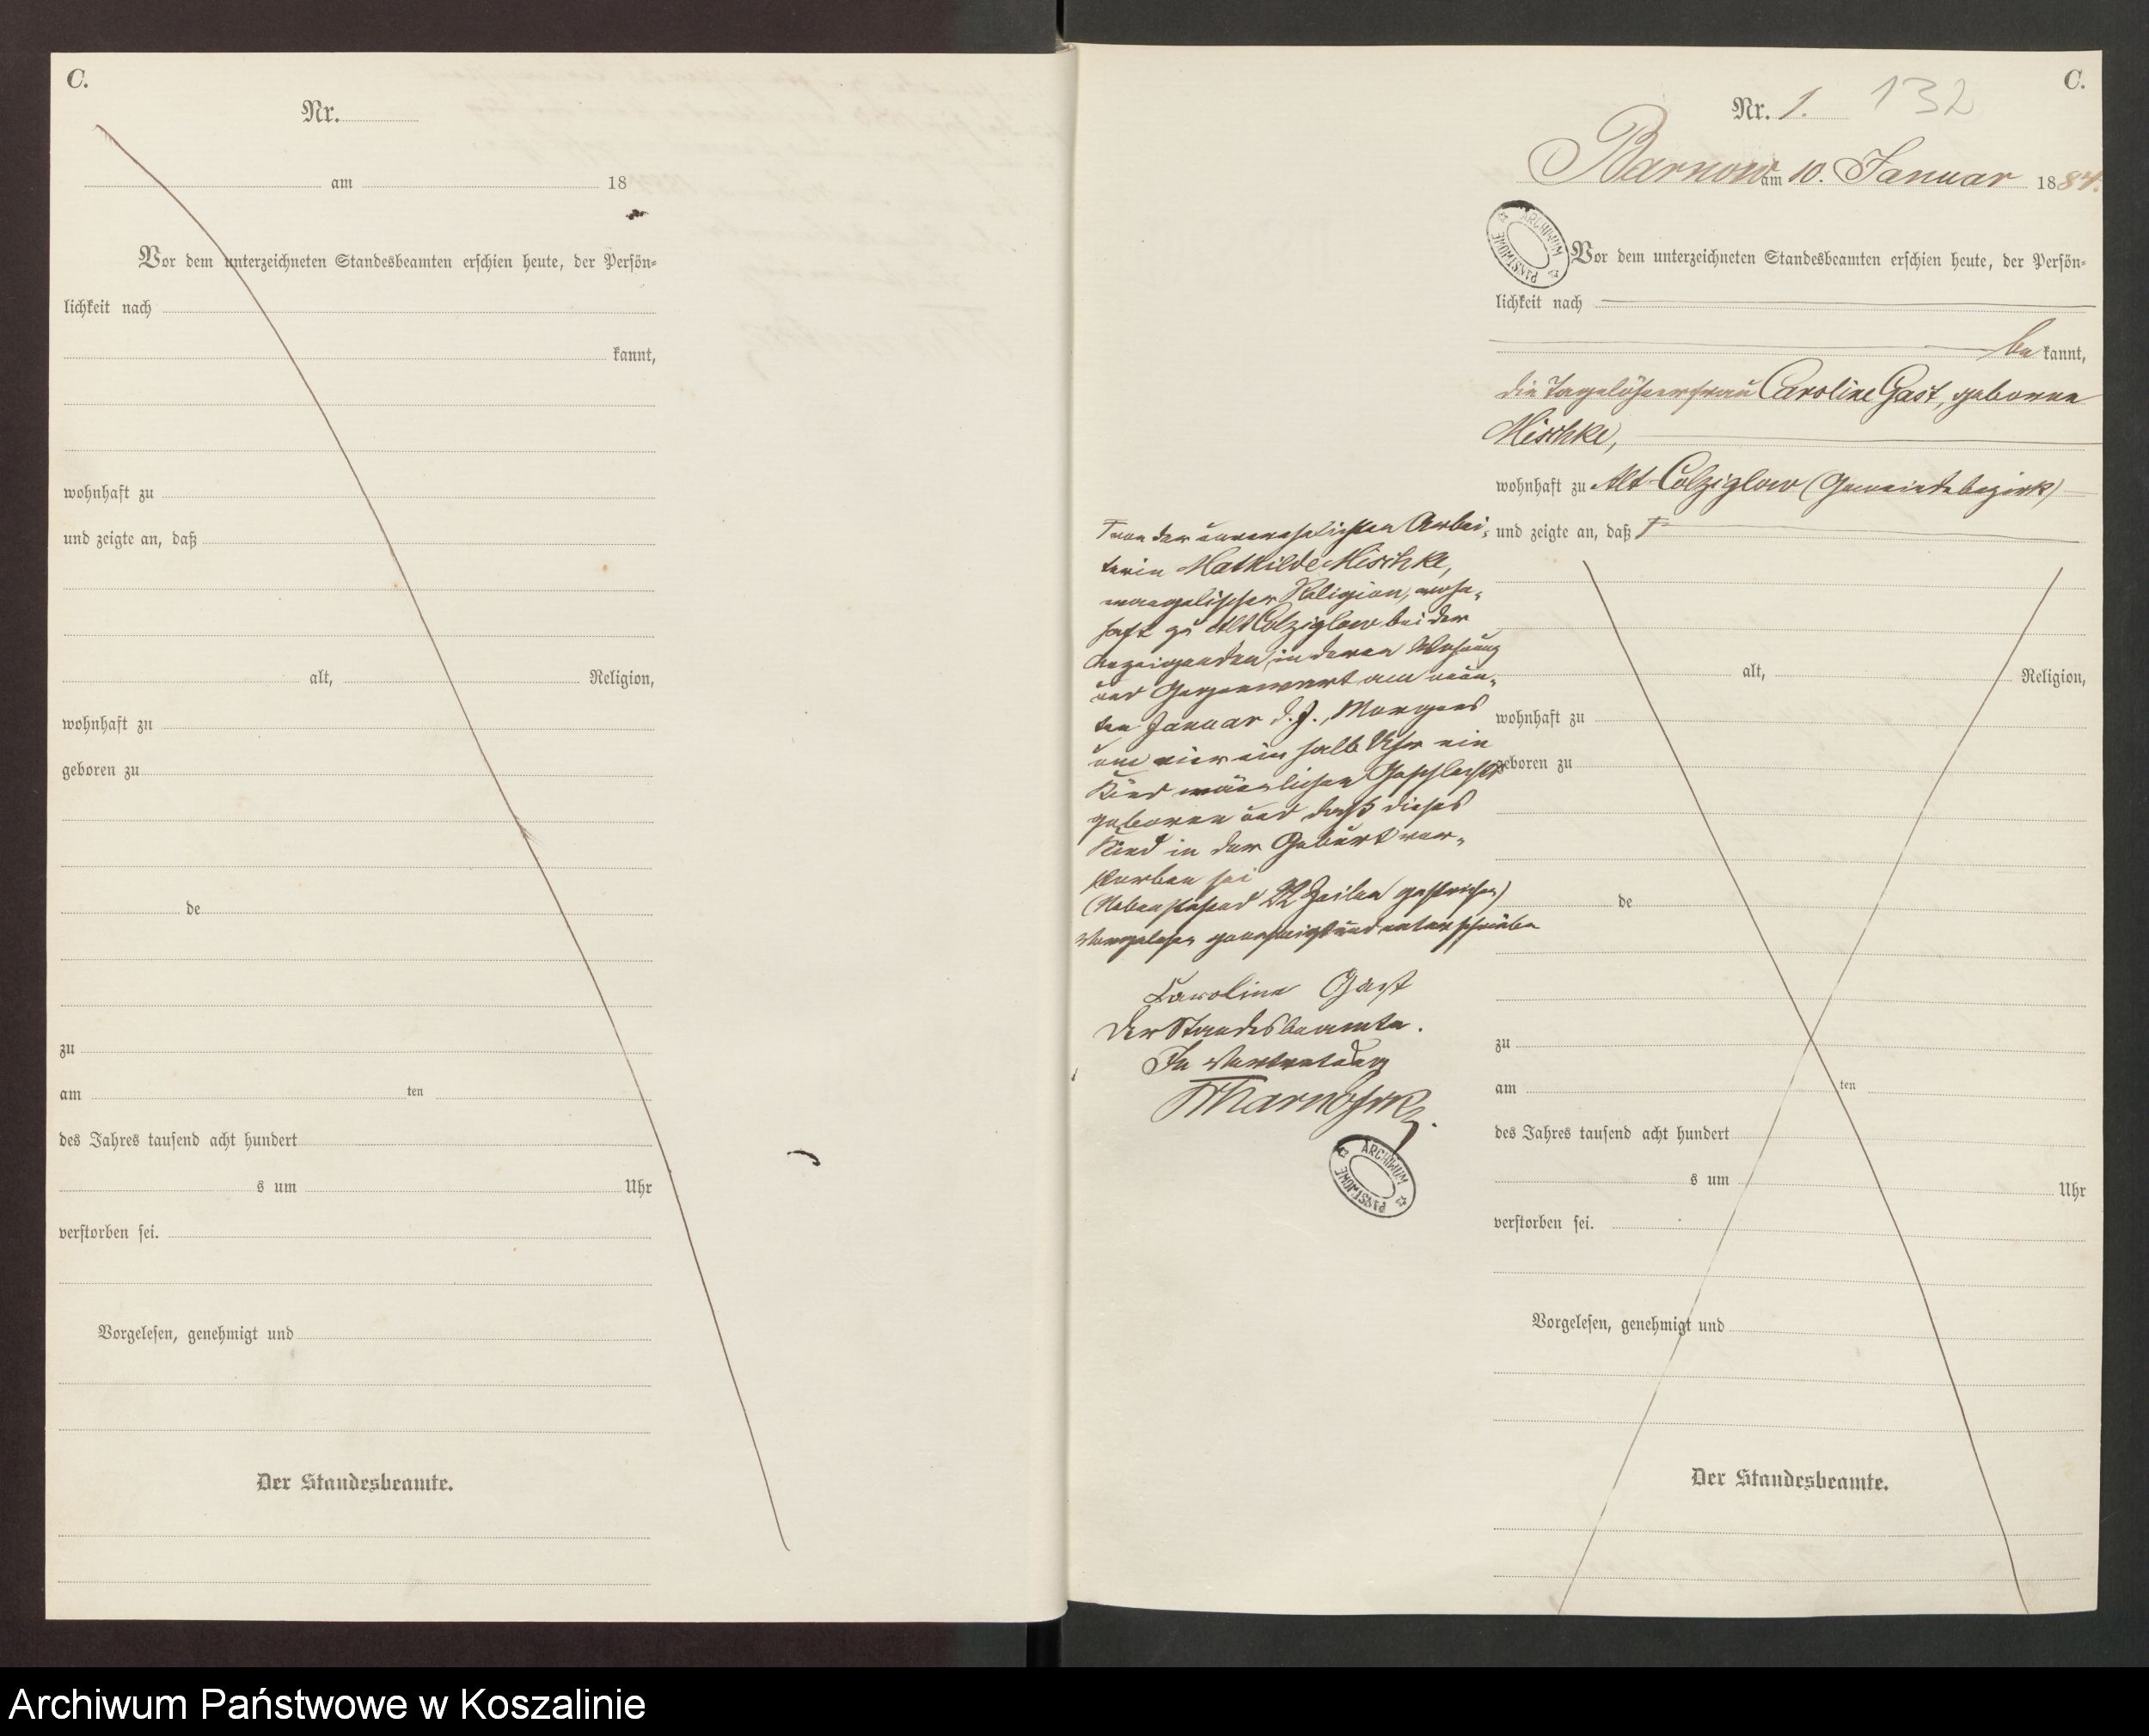 C.
Nr.
am 18
Vor dem unterzeichneten Standesbeamten erschien heute, der Persön-
lichkeit nach
kannt,
wohnhaft zu
und zeigte an, daß
alt, Religion,
wohnhaft zu
geboren zu
de
zu
am ten
des Jahres tausend acht hundert
s um Uhr
verstorben sei.
Vorgelesen, genehmigt und
Der Standesbeamte.
C.
Nr. 1. 132
Barnow am 10. Januar 1884.
Vor dem unterzeichneten Standesbeamten erschien heute, der Persön-
lichkeit nach
be kannt,
die Tagelöhnerfrau Caroline Gast, geborene
Mischke,
wohnhaft zu Alt Colziglow (Gemeindebezirk)
und zeigte an, daß
von der unverehelichten Arbei-
terin Mathilde Mischke,
evangelischer Religion, wohn-
haft zu Alt Colziglow bei der
Anzeigenden, in deren Wohnung
und Gegenwart am neun-
ten Januar d. J., Morgens
um vier ein halb Uhr ein
Kind männlichen Geschlechts
geboren und daß dieses
Kind in der Geburt ver-
storben sei
(Nebenstehend 22 Zeilen gestrichen)
Vorgelesen genehmigt und unterschrieben
Caroline Gast
Der Standesbeamte.
In Vertretung
alt, Religion,
wohnhaft zu
geboren zu
de
zu
am ten
des Jahres tausend acht hundert
s um Uhr
verstorben sei.
Vorgelesen, genehmigt und
Der Standesbeamte.
ARCHIWUM PAŃSTWOWE
ARCHIWUM PAŃSTWOWE
Archiwum Państwowe w Koszalinie